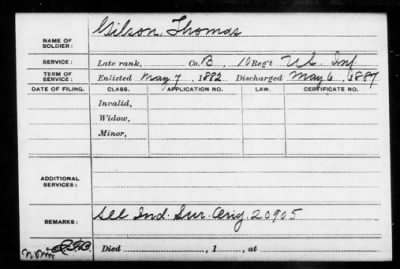 NAME OF SOLDIER: Gilson, Thomas
SERVICE: Late rank, Co. B, 10 Reg't U.S. Inf
TERM OF SERVICE: Enlisted May 7, 1882 Discharged May 6, 1887
DATE OF FILING. CLASS. APPLICATION NO. LAW. CERTIFICATE NO.
Invalid,
Widow,
Minor,
ADDITIONAL SERVICES:
REMARKS: See Ind. Sur. Orig. 20905
Died , 1 , at